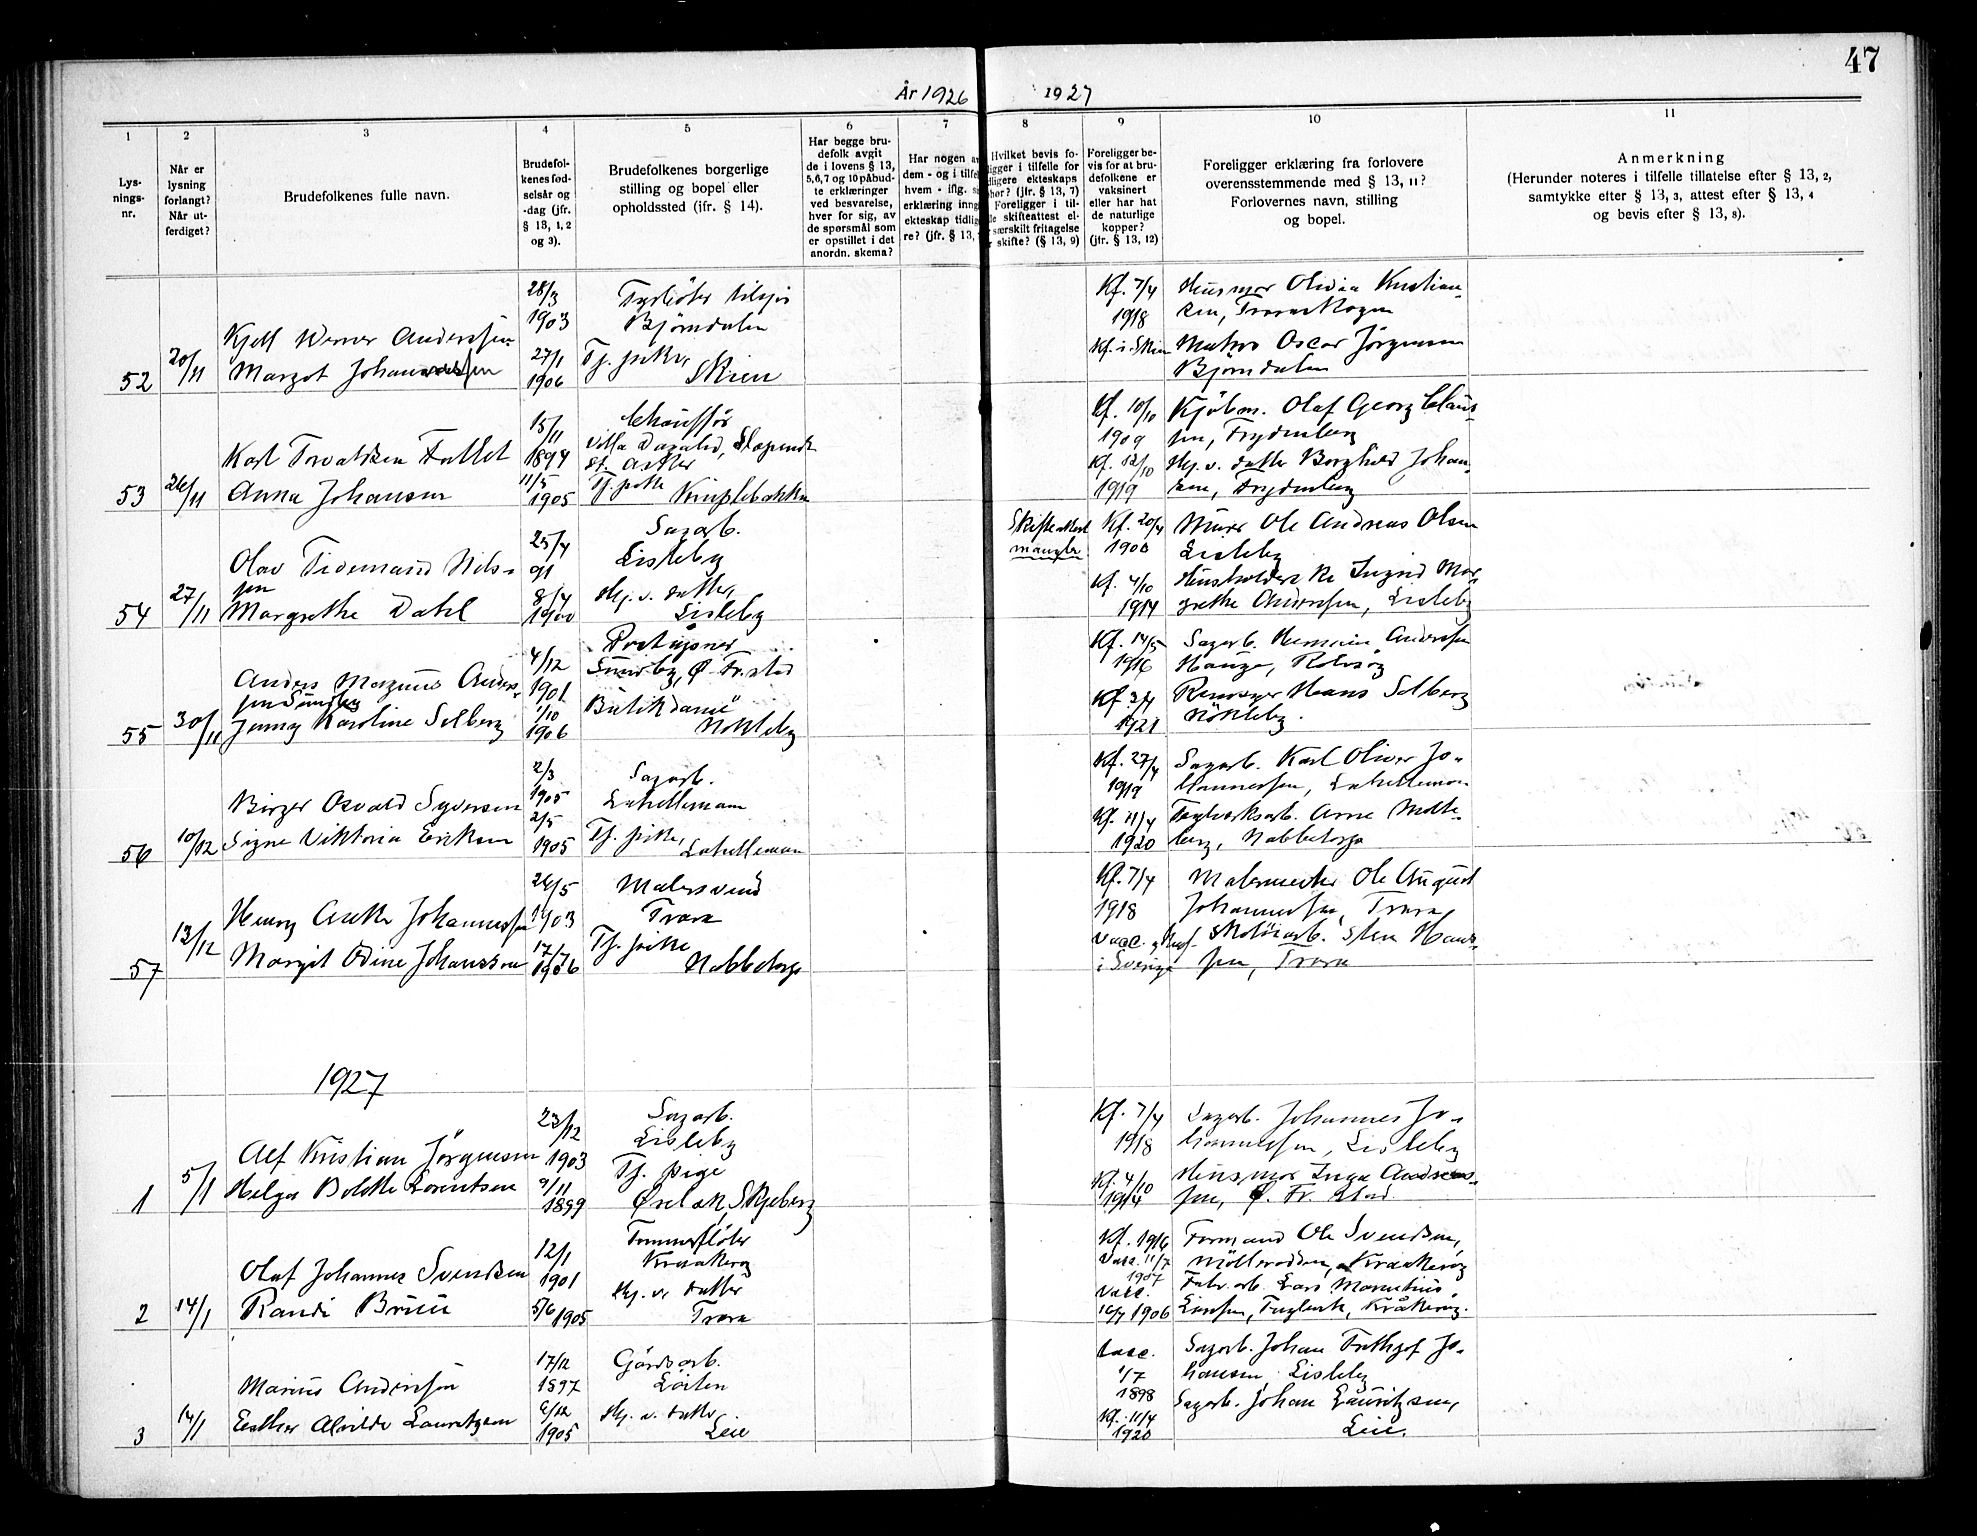 47
År 1926 1927
1 2 3 4 5 6 7 8 9 10 11
Lys-
nings-
nr.
Når er
lysning
forlangt?
Når ut-
ferdiget?
Brudefolkenes fulle navn.
Brudefol-
kenes fød-
selsår og
-dag (jfr.
§ 13, 1, 2
og 3).
Brudefolkenes borgerlige
stilling og bopel eller
opholdssted (ifr. § 14).
Har begge bru-
defolk avgit
de i lovens § 13,
5,6,7 og 10 påbud-
te erklæringer
ved besvarelse,
hver for sig, av
de spørsmål som
er opstillet i det
anordn. skema?
Har nogen a
dem - og i tilfe
hvem - iflg. s
erklæring inng
ekteskap tidlig
re? (jfr. § 13,
Hvilket bevis fo-
ligger i tilfelle for
dligere ekteskaps
hør? (jfr. § 13, 7)
Foreligger i til-
le skifteattest el-
særskilt fritagelse
skifte? (§ 13, 9)
Foreligger be-
vis for at bru-
defolkene er
vaksinert
eller har hat
de naturlige
kopper?
(jfr. § 13, 12)
Foreligger erklæring fra forlovere
overensstemmende med § 13, 11?
Forlovernes navn, stilling
og bopel.
Anmerkning
(Herunder noteres i tilfelle tillatelse efter § 13, 2,
samtykke efter § 13, 3, attest efter § 13, 4
og bevis efter § 13, 8).
52 20/11
Kjell Werner Anderssen
Margot Johannessen
28/3
1903
27/1
1906
Bjørndalen
Tj. pike,
Skien
Kf. 7/4
1918
Kf. i Skien
Husmor Olivia Kristian-
sen,
Oscar Jørgensen
Bjørndalen
53 26/11
Karl Torvaldsen Fallet
Anna Johansen
15/11
1894
11/5
1905
Chauffør
Villa
st. Asker
Tj. pike
Kf. 10/10
1909
Kf. 12/10
1919
Kjøbm. Olaf Georg Claus-
sen, Frydenberg
Hj. v. datter Borghild Johan-
sen, Frydenberg
54 27/11
Olav Tidemand Nils-
sen
Margrethe Dahl
25/4
91
8/4
1900
Sagarb.
Lisleby
Hj. v. datter,
Lisleby
Skifteattest
mangler
Kf. 20/4
1900
Kf. 4/10
1914
Murer Ole Andreas Olsen
Lisleby
Ingrid Mar-
grethe Anderssen, Lisleby
55 30/11
Anders Magnus Anders-
sen Sundby
Jenny Karoline Solberg
4/12
1901
1/10
1906
Sundby, Ø. Fr.stad
Butikdame
Nøkleby
Kf. 14/5
1916
Kf. 3/4
1921
Sagarb. Anderssen
Hauge, Rolvsøy
Hans Solberg
Nøkleby.
56 10/12
Birger Osvald Syversen
Signe Viktoria Eriksen
2/3
1905
2/5
1905
Sagarb.
Labellemoen
Tj. pike,
Labellemoen
Kf. 27/4
1919
Kf. 11/4
1920
Sagarb. Karl Oliver Jo-
hannessen, Labellemoen
Teglverksarb. Arne Molte-
berg, Nabbetorp
57 13/12
Henry Johannessen
Margit Odine Johansson
26/5
1903
17/7
1906
Malersvend
Trara
Tj. pike
Nabbetorp
Kf. 7/4
1918
Vacc. og konf.
i Sverige
Malermester Ole August
Johannessen, Trara
Skotøiarb. Sten Hans-
sen, Trara
1927
1 5/1
Alf Kristian Jørgensen
Helga Bolette Lorentsen
23/12
1903
9/11
1899
Sagarb.
Lisleby
Tj. pige
Skjeberg
Kf. 7/4
1918
Kf. 4/10
1914
Sagarb. Johannes Jo-
hannessen, Lisleby
Husmor Inga Andreas-
sen, Ø. Fr. stad
2 14/1
Olaf Johannes Svendsen
Randi Bruu
12/1
1901
5/6 1905
Tømmerfløter
Kraakerøy
Hj. v. datter
Trara
Kf. 1916
Vacc. 11/7
1907
Vacc.
1906
Formand Ole Svendsen,
Mølleodden, Kraakerøy
Fabr. arb. Lars
Kråkerøy.
3 14/1
Marius Anderssen
Esther Alvilde Lauritzsen
17/12
1897
9/12
1905
Gårdsarb.
Løiten
Hj. v. datter
Leie
Vacc.
1/7
1898
Kf. 11/4
1920
Sagarb. Johan Frithjof Jo-
hansen, Lisleby
Sagarb. Johan Lauritzsen,
Leie.